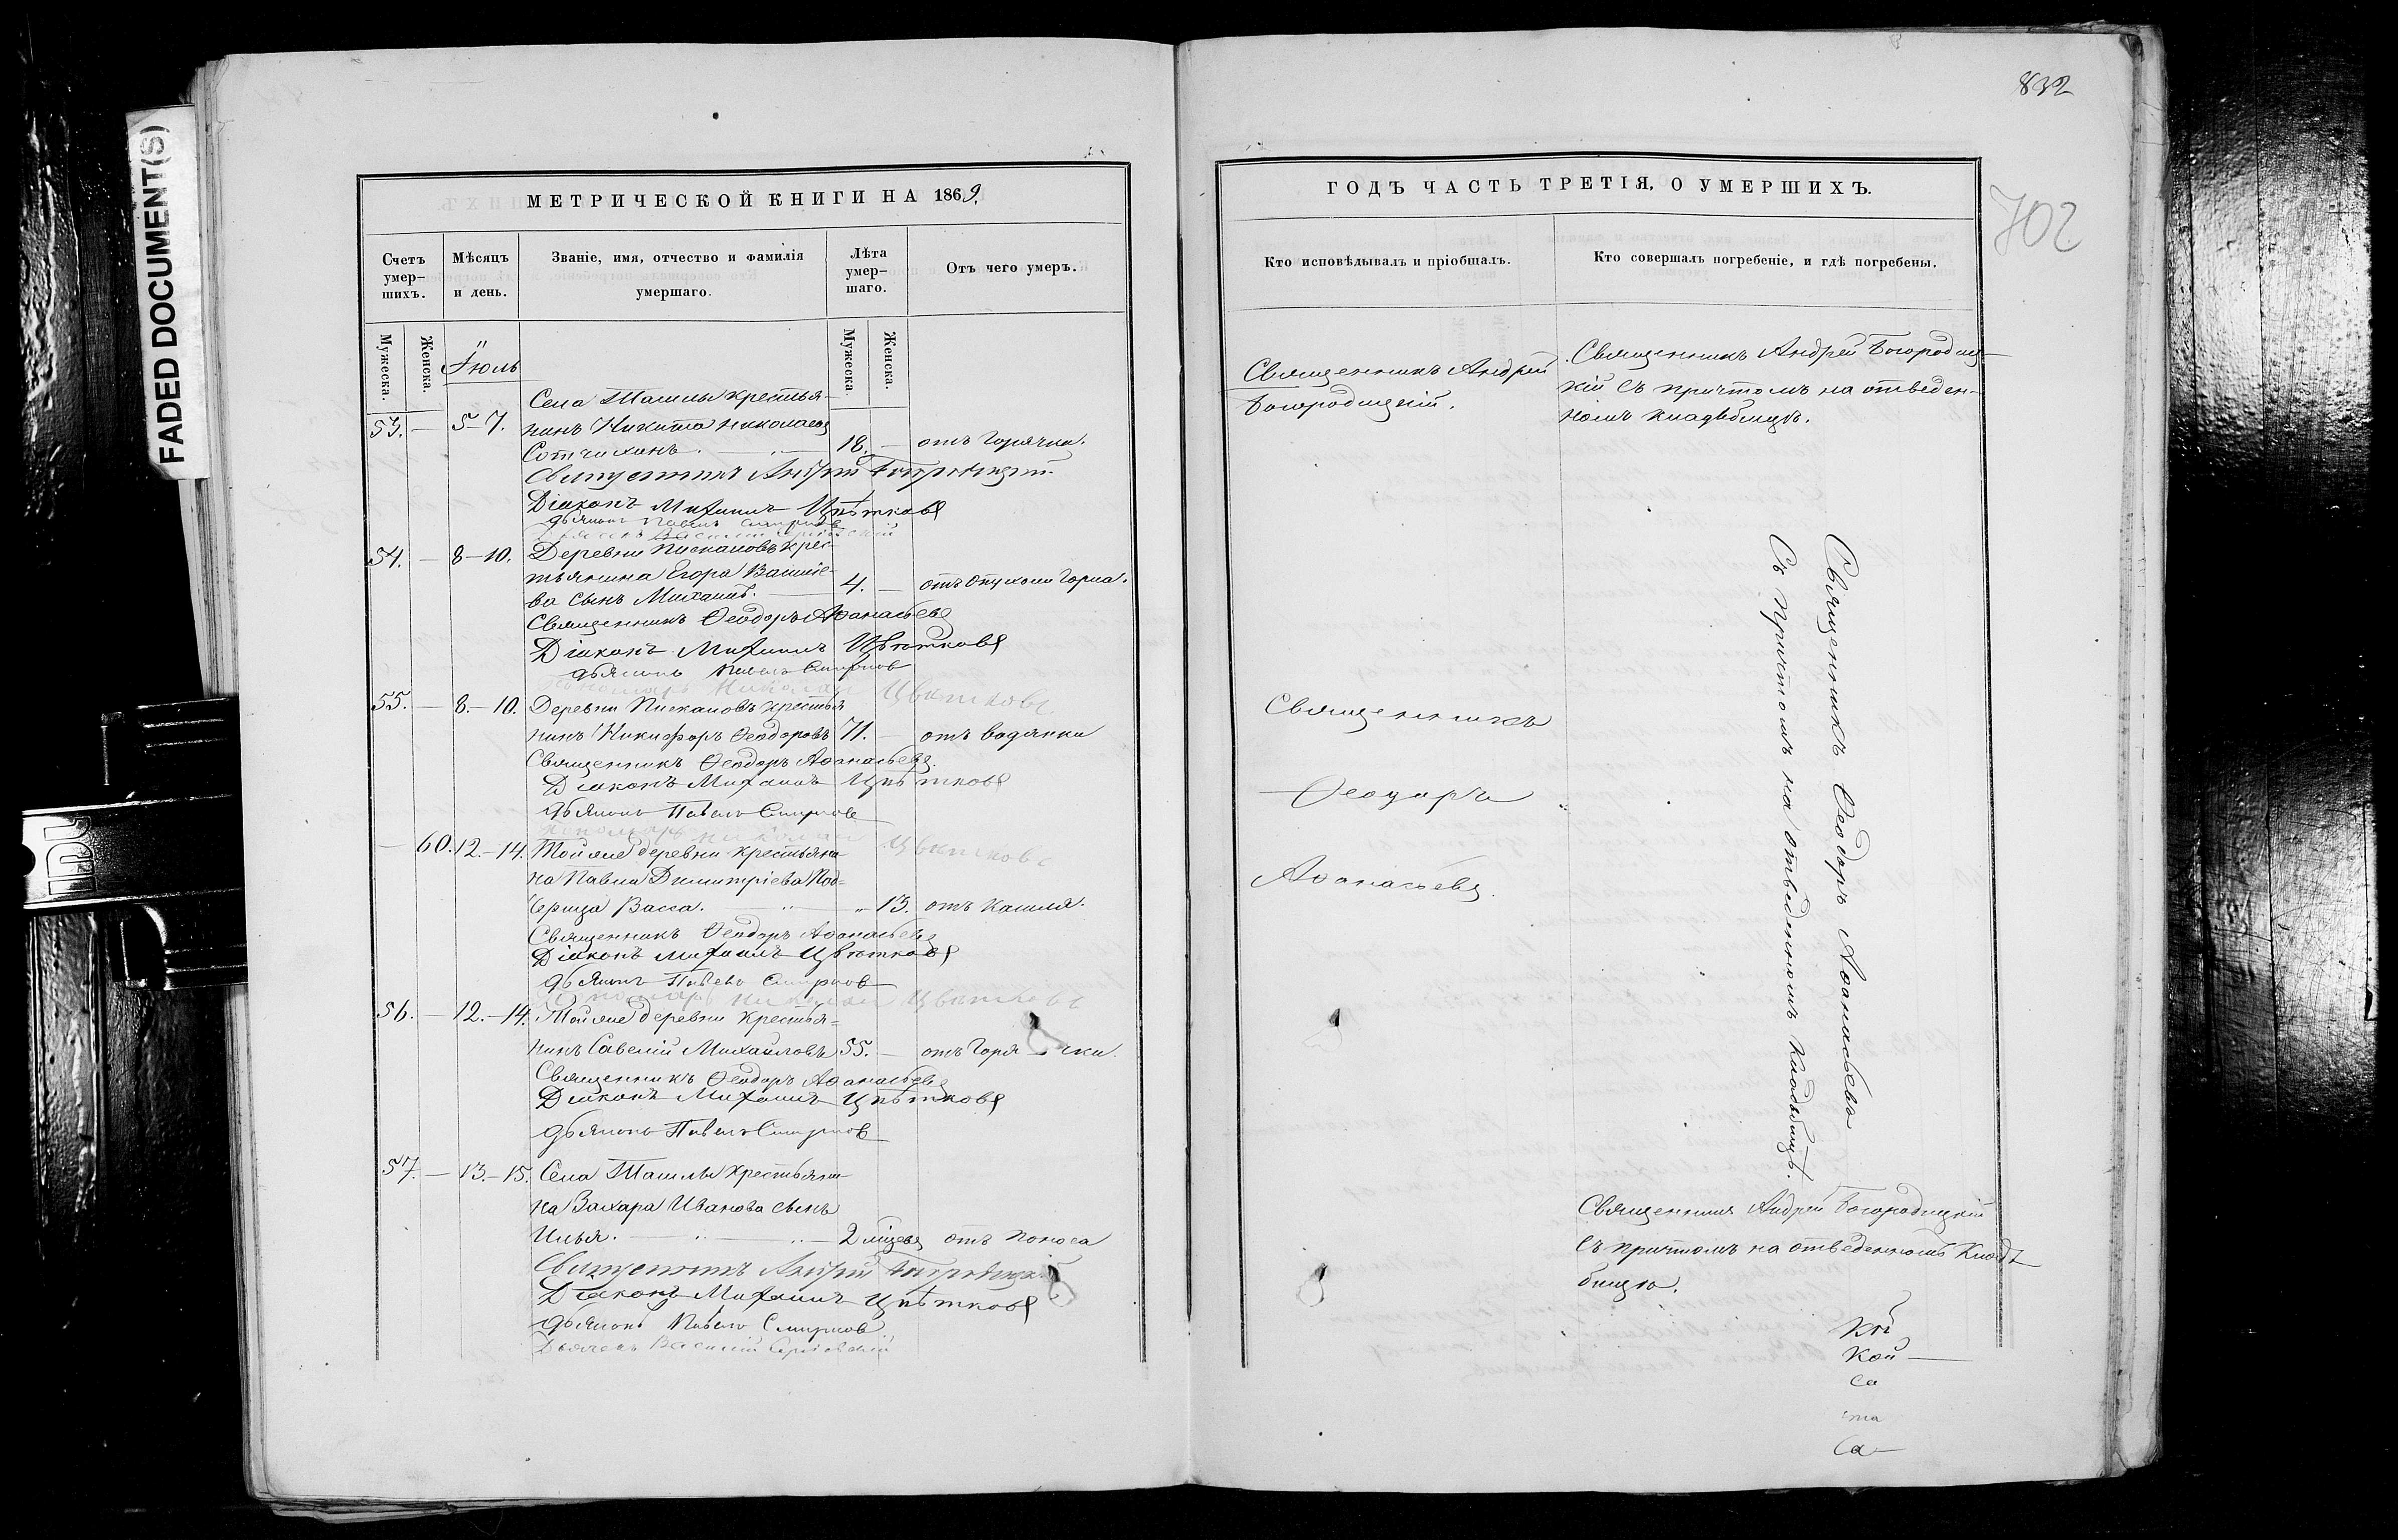 FADED DOCUMENT(S)
МЕТРИЧЕСКОЙ КНИГИ НА 1869.
Счетъ умер-шихъ.
Мѣсяцъ и день.
Званіе, имя, отчество и фамилія умершаго.
Лѣта умер-шаго.
Отъ чего умеръ.
Мужеска.
Женска.
Мужеска.
Женска.
Іюль
Села Ташлы крестья-
53. — 5-7. нинъ Никита Николаевъ
18. — отъ горячки.
Священникъ Андрей Богородицкій
Діаконъ Михаилъ Цвѣтковъ
дьячокъ Павелъ Смирновъ
54. — 8-10. Деревни Пискаловъ крес-
тьянина Егора Василье-
ва сынъ Михаилъ. 4. — отъ опухоли горла.
Священникъ Ѳеодоръ Аѳанасьевъ
Діаконъ Михаилъ Цвѣтковъ
дьячокъ Павелъ Смирнов
Пономарь Николай Цвѣтковъ
55. — 8.-10. Деревни Пискаловъ крестья
нинъ Никифоръ Ѳеодоровъ 71. — отъ водянки
Священникъ Ѳеодоръ Аѳанасьевъ.
Діаконъ Михаилъ Цвѣтковъ
дьячокъ Павелъ Смирнов
Пономарь Николай Цвѣтковъ
— 60. 12.-14. Той же деревни крестьяни-
на Павла Димитріева доч=
Васса. „ 13. отъ кашля.
Священникъ Ѳеодоръ Аѳанасьевъ
Діаконъ Михаилъ Цвѣтковъ
дьячокъ Павелъ Смирнов
Пономарь Николай Цвѣтковъ
56. — 12.-14. Той же деревни крестья=
нинъ Савелій Михайловъ 55. — отъ горячки.
Священникъ Ѳеодоръ Аѳанасьевъ
Діаконъ Михаилъ Цвѣтковъ
дьячокъ Павелъ Смирнов
57. — 13.-15. Села Ташлы крестьяни-
на Захара Иванова сынъ
Илья. 2 мѣсяц отъ поноса
Священникъ Андрей Богородицкій
Діаконъ Михаилъ Цвѣтковъ
дьячокъ Павелъ Смирнов
Дьячекъ Василій
832
702
ГОДЪ ЧАСТЬ ТРЕТІЯ, О УМЕРШИХЪ.
Кто исповѣдывалъ и пріобщалъ.
Кто совершалъ погребеніе, и гдѣ погребены.
Священникъ Андрей
Богородицкій.
Священникъ Андрей Богородиц-
кій съ причтомъ на отведен-
номъ кладбищѣ.
Священникъ
Ѳеодоръ
Аѳанасьевъ.
Священникъ Ѳеодоръ Аѳанасьевъ
съ причтомъ на отведенномъ кладбищѣ.
Священникъ Андрей Богородицкій
съ причтомъ на отведенномъ кладъ
бищѣ.
кой
са
та
са